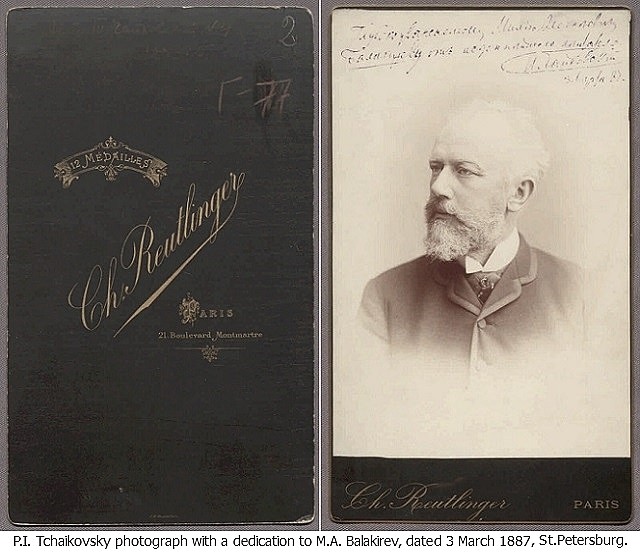 2
12 MÉDAILLES
Ch. Reutlinger
PARIS
21. Boulevard, Montmartre
Милию Алексеевичу
Балакиреву от
П. Чайковский
Ch. Reutlinger
PARIS
P.I. Tchaikovsky photograph with a dedication to M.A. Balakirev, dated 3 March 1887, St.Petersburg.